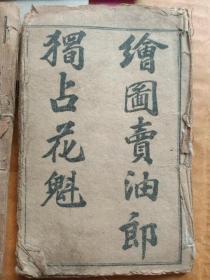 繪圖賣油郎
獨占花魁